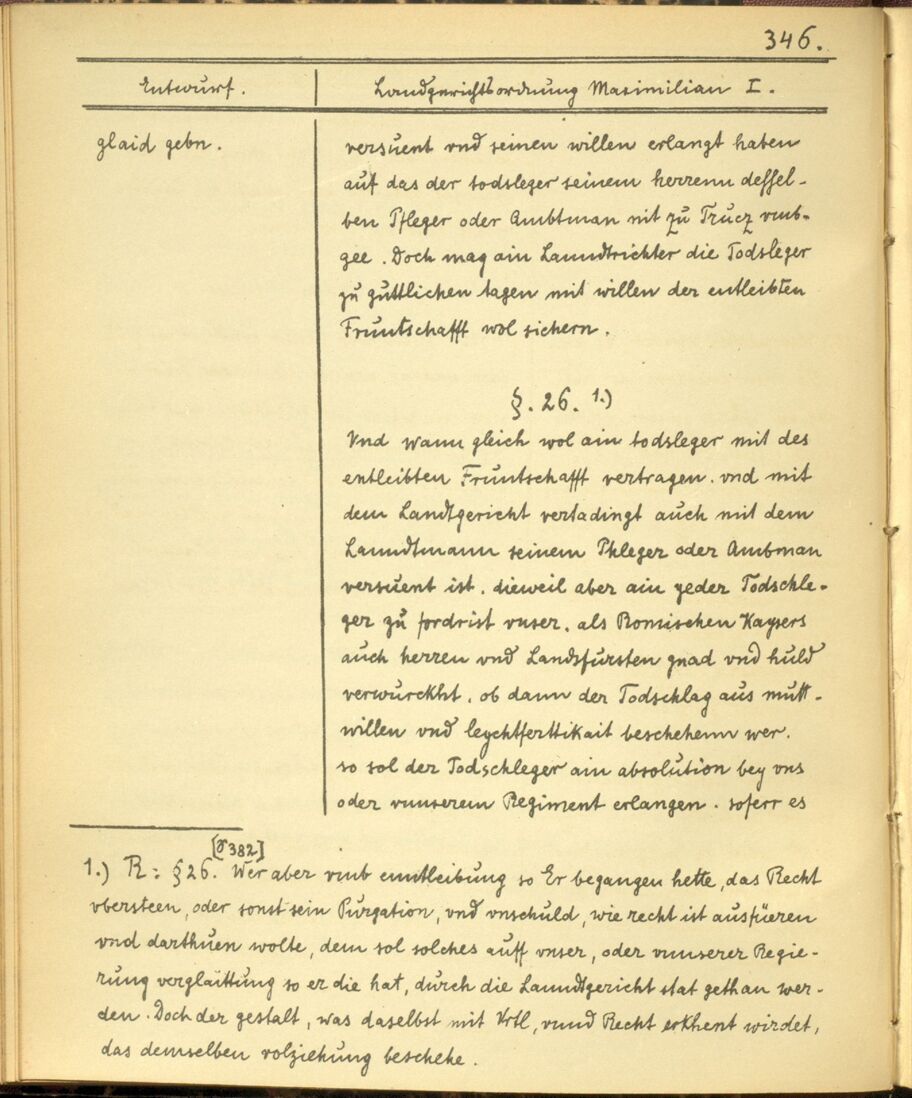 346.
Entwurf.
Landgerichtsordnung Maximilian I.
glaid gebn.
versuent vnd seinen willen erlangt haben
auf das der todsleger seinem herrenn dessel-
ben Pfleger oder Ambtman nit zů Trucz vmb-
gee. Doch mag ain Lanndtrichter die Todsleger
zů guttlichen tagen mit willen der entleibten
Fruntschafft wol sichern.
§. 26. 1.)
Vnd wann gleich wol ain todsleger mit des
entleibten Fruntschafft vertragen. vnd mit
dem Landtgericht vertadingt auch mit dem
Lanndtmann seinem Phleger oder Ambman
versuent ist. dieweil aber ain yeder Todschle-
ger zů fordrist vnser. als Romischen Kaysers
auch herren vnd Landsfürsten gnad vnd huld
verwürckht. ob dann der Todschlag aus mutt-
willen vnd leychtferttikait beschehenn wer.
so sol der Todschleger ain absolution bey vns
oder vnnserem Regiment erlangen. soferr es
[S 382]
1.) R: § 26. Wer aber vmb enntleibung so Er begangen hette, das Recht
vbersteen, oder sonst sein Purgation, vnd vnschuld, wie recht ist ausfüeren
vnd darthuen wolte, dem sol solches auff vnser, oder vnnserer Regie-
rung verglaittung so er die hat, durch die Lanndtgericht stat gethan wer-
den. Doch der gestalt, was daselbst mit Vrtl, vnnd Recht erkhent wirdet,
das demselben volziehung beschehe.